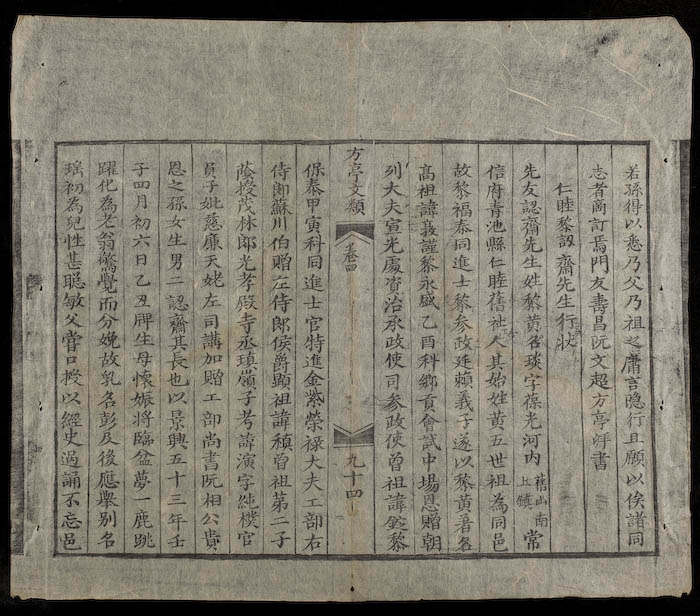 若孫得以悉乃父乃祖之庸言隐行且願以俟諸同
志者商訂焉門友壽昌阮文超方亭拜書
仁睦黎認齋先生行状
先友認齋先生姓黎黃名琰字葆光河内舊山南上鎮常
信府青池縣仁睦舊社人其始姓黃五世祖為同邑
故黎福泰同進士黎參政廷賴義子遂以黎黃著名
高祖諱義謹黎永盛乙酉科鄉貢會試中場恩贈朝
列大夫宣光處賛治承政使司參政使曾祖諱鋐黎
方亭文類
卷四
九十四
保泰甲寅科同進士官特進金紫榮禄大夫工部右
侍郎蘇川伯贈左侍郎侯爵顯祖諱穎曾祖第二子
蔭授茂林郎光孝殿寺丞瑱嶺子考諱演字純樸官
員子妣慈廉天姥左司講加贈工部尚書阮相公貴
恩之孫女生男二認齋其長也以景興五十三年壬
子四月初六日乙丑牌生母懷娠將臨盆夢一鹿跳
躍化為老翁驚覺而分娩故乳名彭及後應舉别名
瑶初為兒性甚聪敏父嘗口授以經史過誦不忘邑